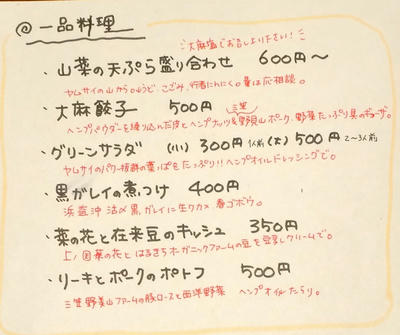 @ 一品料理
大麻塩でお召し上り下さい!
・山菜の天ぷら盛り合わせ 600円〜
ヤムサイの山から山うど、こごみ、行者にんにく。量は応相談。
・大麻餃子 500円 三笠
ヘンプパウダーを練り込んだ皮とヘンプナッツ& ポーク、野菜たっぷり具のギョーザ。
・グリーンサラダ (小)300円 1人前 (大)500円 2〜3人前
ヤムサイのパワー抜群の葉っぱをたっぷり!!ヘンプオイルドレッシングで。
・黒ガレイの煮つけ 400円
浜益沖 活〆黒ガレイに生ワカメ 春ゴボウ。
・菜の花と在来豆のキッシュ 350円
菜の花とはるきちオーガニックファームの豆を豆乳クリームで。
・リーキとポークのポトフ 500円
三笠 ファームの豚ロースと西洋野菜 ヘンプオイルたらり。